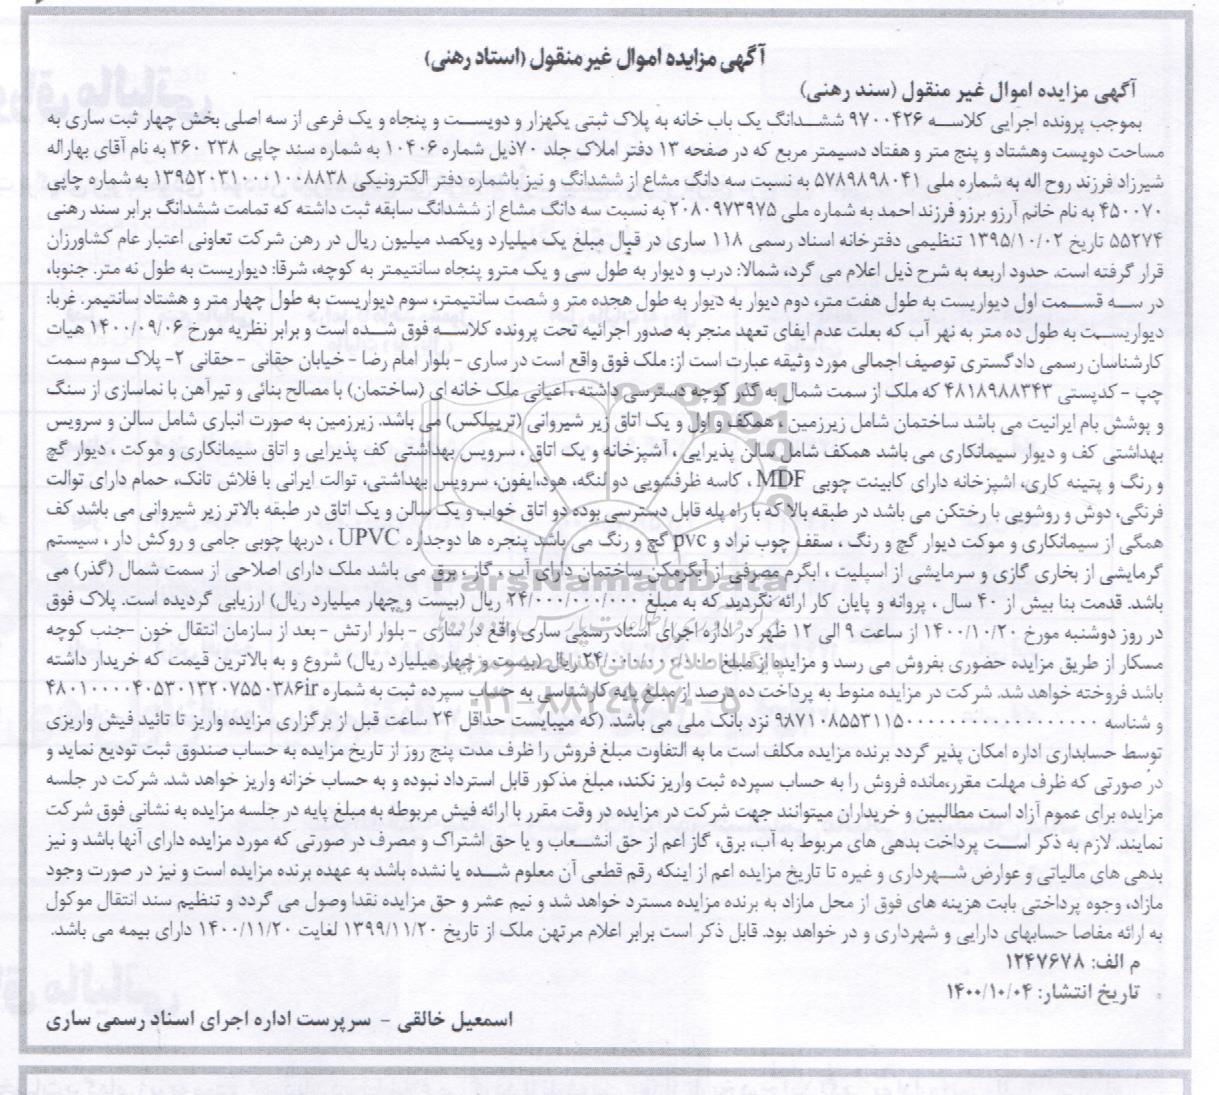 آگهی مزایده اموال غیرمنقول (اسناد رهنی)
آگهی مزایده اموال غیر منقول (سند رهنی)
بموجب پرونده اجرایی کلاسه ۹۷۰۰۴۲۶ ششدانگ یک باب خانه به پلاک ثبتی یکهزار و دویست و پنجاه و یک فرعی از سه اصلی بخش چهار ثبت ساری به
مساحت دویست وهشتاد و پنج متر و هفتاد دسیمتر مربع که در صفحه ۱۳ دفتر املاک جلد ۷۰ذیل شماره ۱۰۴۰۶ به شماره سند چاپی ۲۳۸ ۳۶۰ به نام آقای بهاراله
شیرزاد فرزند روح اله به شماره ملی ۵۷۸۹۸۹۸۰۴۱ به نسبت سه دانگ مشاع از ششدانگ و نیز باشماره دفتر الکترونیکی ۱۳۹۵۲۰۳۱۰۰۰۱۰۰۸۸۳۸ به شماره چاپی
۴۵۰۰۷۰ به نام خانم آرزو برزو فرزند احمد به شماره ملی ۲۰۸۰۹۷۳۹۷۵ به نسبت سه دانگ مشاع از ششدانگ سابقه ثبت داشته که تمامت ششدانگ برابر سند رهنی
۵۵۲۷۴ تاریخ ۱۳۹۵/۱۰/۰۲ تنظیمی دفترخانه اسناد رسمی ۱۱۸ ساری در قبال مبلغ یک میلیارد ویکصد میلیون ریال در رهن شرکت تعاونی اعتبار عام کشاورزان
قرار گرفته است. حدود اربعه به شرح ذیل اعلام می گرد، شمالا: درب و دیوار به طول سی و یک مترو پنجاه سانتیمتر به کوچه، شرقا: دیواریست به طول نه متر. جنوبا،
در سه قسمت اول دیواریست به طول هفت متر، دوم دیوار به دیوار به طول هجده متر و شصت سانتیمتر، سوم دیواریست به طول چهار متر و هشتاد سانتیمر. غربا:
دیواریست به طول ده متر به نهر آب که بعلت عدم ایفای تعهد منجر به صدور اجرائیه تحت پرونده کلاسه فوق شده است و برابر نظریه مورخ ۱۴۰۰/۰۹/۰۶ هیات
کارشناسان رسمی دادگستری توصیف اجمالی مورد وثیقه عبارت است از: ملک فوق واقع است در ساری - بلوار امام رضا - خیابان حقانی - حقانی ۲- پلاک سوم سمت
چپ - کدپستی ۴۸۱۸۹۸۸۳۴۳ که ملک از سمت شمال به گذر کوچه دسترسی داشته ، اعیانی ملک خانه ای (ساختمان) با مصالح بنائی و تیرآهن با نماسازی از سنگ
و پوشش بام ایرانیت می باشد ساختمان شامل زیرزمین ، همکف و اول و یک اتاق زیر شیروانی (تریپلکس) می باشد. زیرزمین به صورت انباری شامل سالن و سرویس
بهداشتی کف و دیوار سیمانکاری می باشد همکف شامل سالن پذیرایی ، آشپزخانه و یک اتاق ، سرویس بهداشتی کف پذیرایی و اتاق سیمانکاری و موکت ، دیوار گچ
و رنگ و پتینه کاری، اشپزخانه دارای کابینت چوبی MDF ، کاسه ظرفشویی دو لنگه، هود،ایفون، سرویس بهداشتی، توالت ایرانی با فلاش تانک، حمام دارای توالت
فرنگی، دوش و روشویی با رختکن می باشد در طبقه بالا که با راه پله قابل دسترسی بوده دو اتاق خواب و یک سالن و یک اتاق در طبقه بالاتر زیر شیروانی می باشد کف
همگی از سیمانکاری و موکت دیوار گچ و رنگ ، سقف چوب نراد و pvc گچ و رنگ می باشد پنجره ها دوجداره UPVC ، دربها چوبی جامی و روکش دار ، سیستم
گرمایشی از بخاری گازی و سرمایشی از اسپلیت ، ابگرم مصرفی از آبگرمکن ساختمان دارای آب ، گاز ، برق می باشد ملک دارای اصلاحی از سمت شمال (گذر) می
باشد. قدمت بنا بیش از ۴۰ سال ، پروانه و پایان کار ارائه نگردید که به مبلغ ۲۴/۰۰۰/۰۰۰/۰۰۰ ریال (بیست و چهار میلیارد ریال) ارزیابی گردیده است. پلاک فوق
در روز دوشنبه مورخ ۱۴۰۰/۱۰/۲۰ از ساعت ۹ الی ۱۲ ظهر در اداره اجرای اسناد رسمی ساری واقع در ساری - بلوار ارتش - بعد از سازمان انتقال خون -جنب کوچه
مسکار از طریق مزایده حضوری بفروش می رسد و مزایده از مبلغ ۲۴/۰۰۰/۰۰۰/۰۰۰ ریال (بیست و چهار میلیارد ریال) شروع و به بالاترین قیمت که خریدار داشته
باشد فروخته خواهد شد. شرکت در مزایده منوط به پرداخت ده درصد از مبلغ پایه کارشناسی به حساب سپرده ثبت به شماره ۴۸۰۱۰۰۰۰۴۰۵۳۰۱۳۲۰۷۵۵۰۳۸۶ir
و شناسه ۹۸۷۱۰۸۵۵۳۱۱۵۰۰۰۰۰۰۰۰۰۰۰۰۰۰۰۰۰ نزد بانک ملی می باشد. (که میبایست حداقل ۲۴ ساعت قبل از برگزاری مزایده واریز تا تائید فیش واریزی
توسط حسابداری اداره امکان پذیر گردد برنده مزایده مکلف است ما به التفاوت مبلغ فروش را ظرف مدت پنج روز از تاریخ مزایده به حساب صندوق ثبت تودیع نماید و
در صورتی که ظرف مهلت مقرر،مانده فروش را به حساب سپرده ثبت واریز نکند، مبلغ مذکور قابل استرداد نبوده و به حساب خزانه واریز خواهد شد. شرکت در جلسه
مزایده برای عموم آزاد است مطالبین و خریداران میتوانند جهت شرکت در مزایده در وقت مقرر با ارائه فیش مربوطه به مبلغ پایه در جلسه مزایده به نشانی فوق شرکت
نمایند. لازم به ذکر است پرداخت بدهی های مربوط به آب، برق، گاز اعم از حق انشعاب و یا حق اشتراک و مصرف در صورتی که مورد مزایده دارای آنها باشد و نیز
بدهی های مالیاتی و عوارض شهرداری و غیره تا تاریخ مزایده اعم از اینکه رقم قطعی آن معلوم شده یا نشده باشد به عهده برنده مزایده است و نیز در صورت وجود
مازاد، وجوه پرداختی بابت هزینه های فوق از محل مازاد به برنده مزایده مسترد خواهد شد و نیم عشر و حق مزایده نقدا وصول می گردد و تنظیم سند انتقال موکول
به ارائه مفاصا حسابهای دارایی و شهرداری و در خواهد بود. قابل ذکر است برابر اعلام مرتهن ملک از تاریخ ۱۳۹۹/۱۱/۲۰ لغایت ۱۴۰۰/۱۱/۲۰ دارای بیمه می باشد.
م الف: ۱۲۴۷۶۷۸
تاریخ انتشار: ۱۴۰۰/۱۰/۰۴
اسمعیل خالقی - سرپرست اداره اجرای اسناد رسمی ساری
ParsNamadData
۰۲۱-۸۸۳۴۹۶۷۰-۵